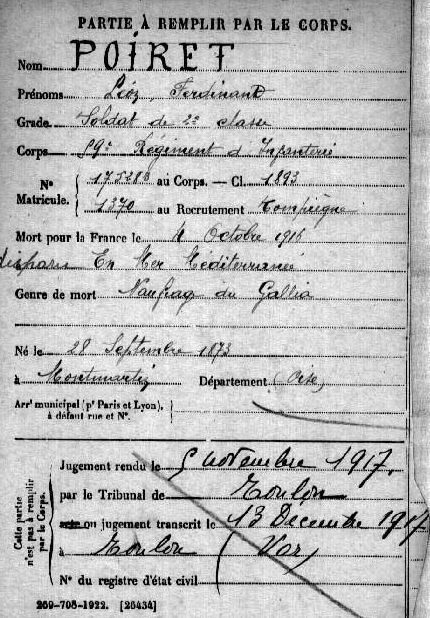 PARTIE À REMPLIR PAR LE CORPS.
Nom POIRET
Prénoms Léon, Ferdinand
Grade Soldat de 2e classe
Corps 59e Régiment d'Infanterie
Nº 175283 au Corps. — Cl. 1893
Matricule. 1370 au Recrutement Compiègne
Mort pour la France le 4 Octobre 1916
disparu En Mer Méditerranée
Genre de mort Naufrag du Gallia
Né le 28 Septembre 1873
à Montmartin Département (Oise)
Arrt municipal (pr Paris et Lyon),
à défaut rue et Nº.
Cette partie
n'est pas à remplir
par le Corps.
Jugement rendu le 5 novembre 1917,
par le Tribunal de Toulon
ou jugement transcrit le 13 Décembre 1917
à Toulon (Var)
Nº du registre d'état civil
269-708-1922. [26434]